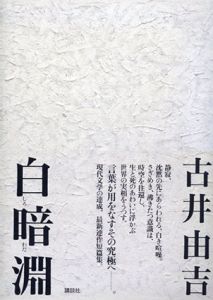 古井由吉
静寂、
沈黙の先にあらわれる、白き喧噪。
さざめき、沸きたつ意識は、
時空を往還し、
生と死のあわいに浮かぶ
世界の実相をうつす。
言葉が用をなすその究極へ
現代文学の達成、最新連作短篇集。
白暗淵
しろ わだ
講談社